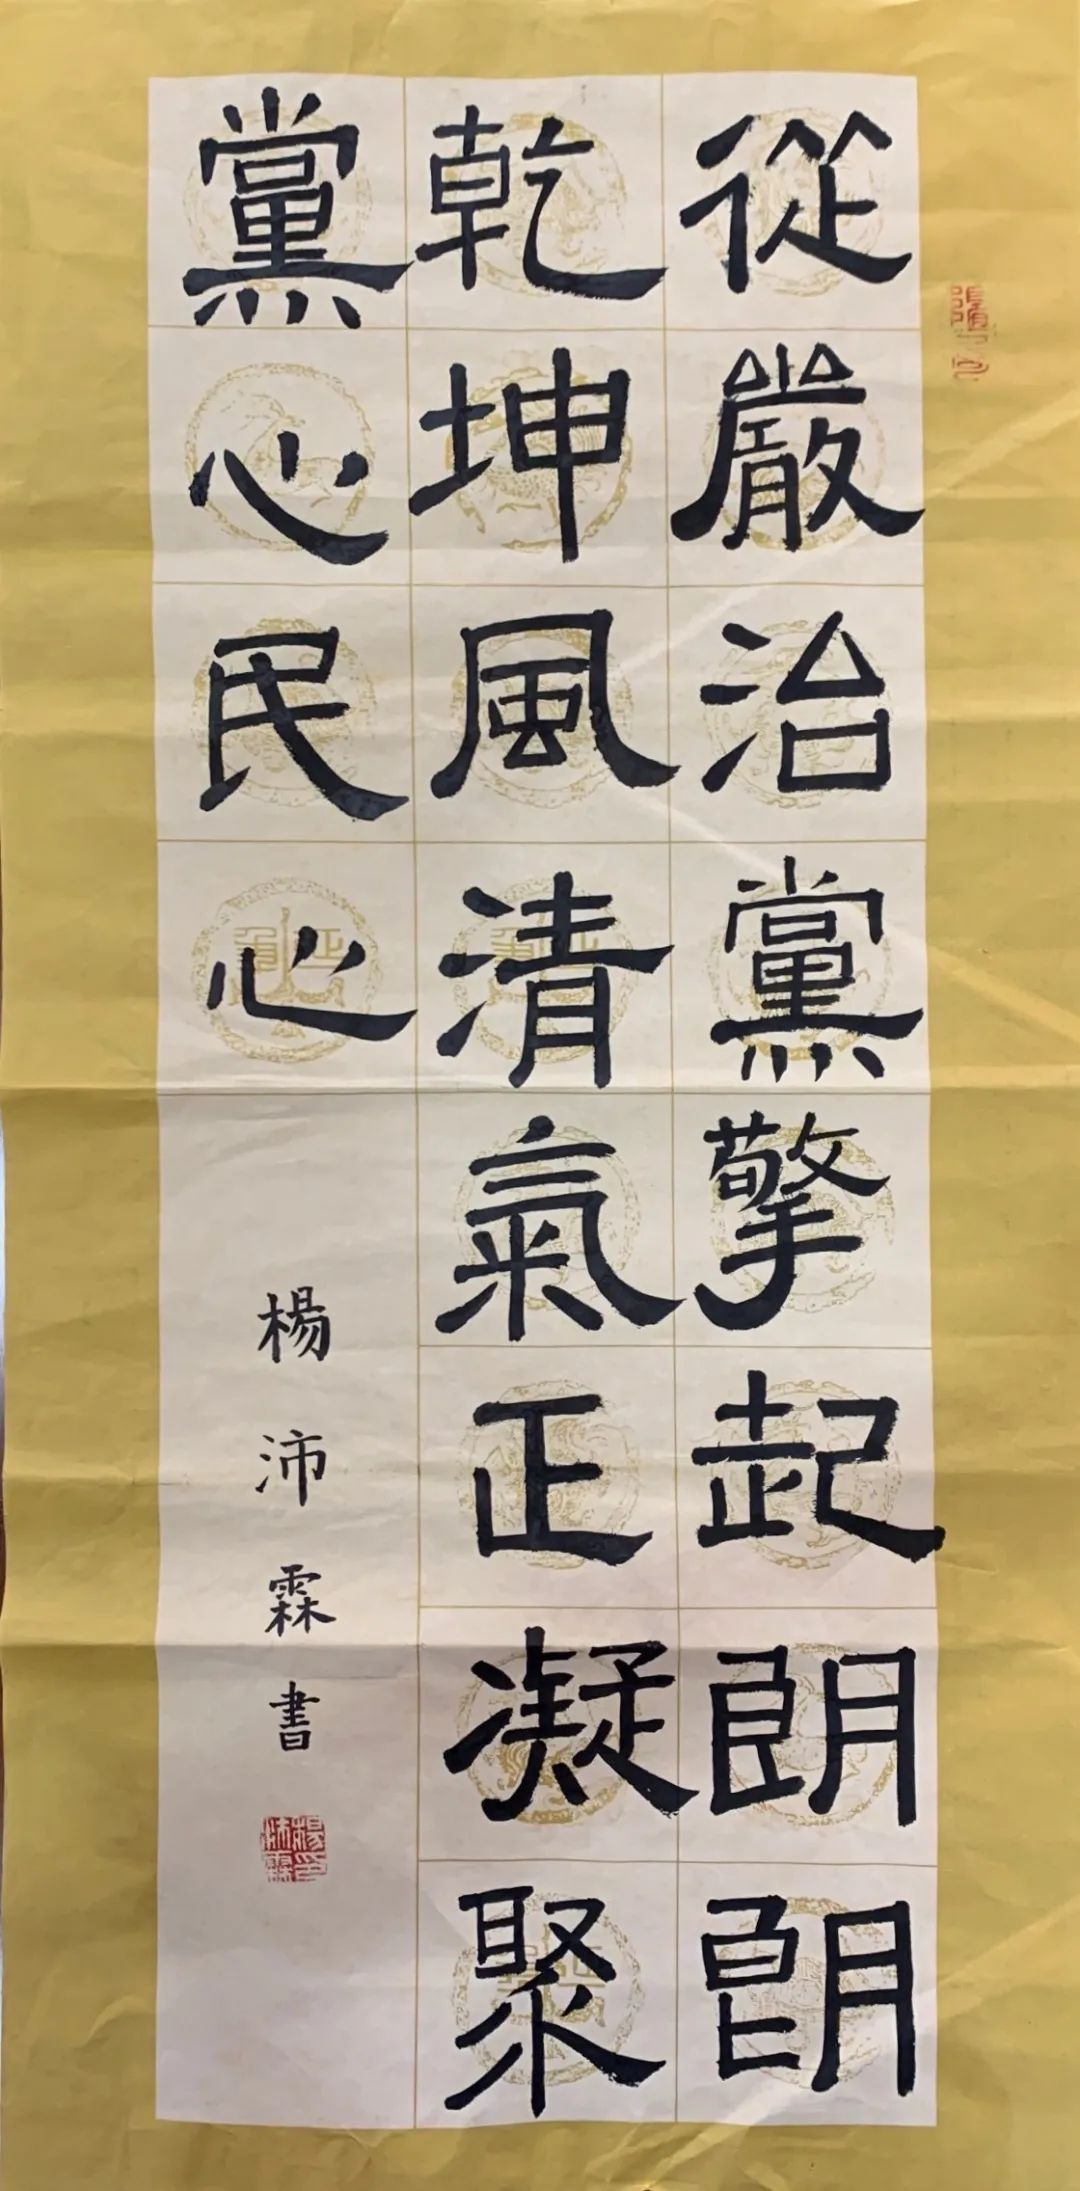 從嚴治黨擎起朗朗
乾坤風清氣正凝聚
黨心民心
楊沛霖書